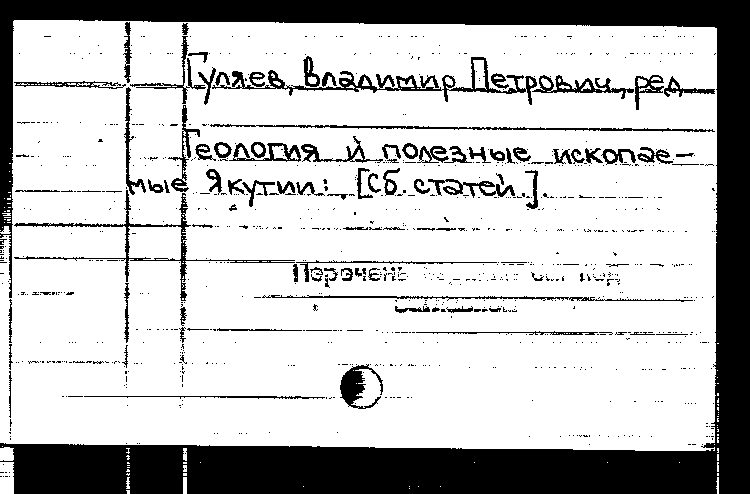 Гуляев, Владимир Петрович, ред
Геология и полезные ископае-
мые Якутии: [Сб. статей.].
Перечень см. под